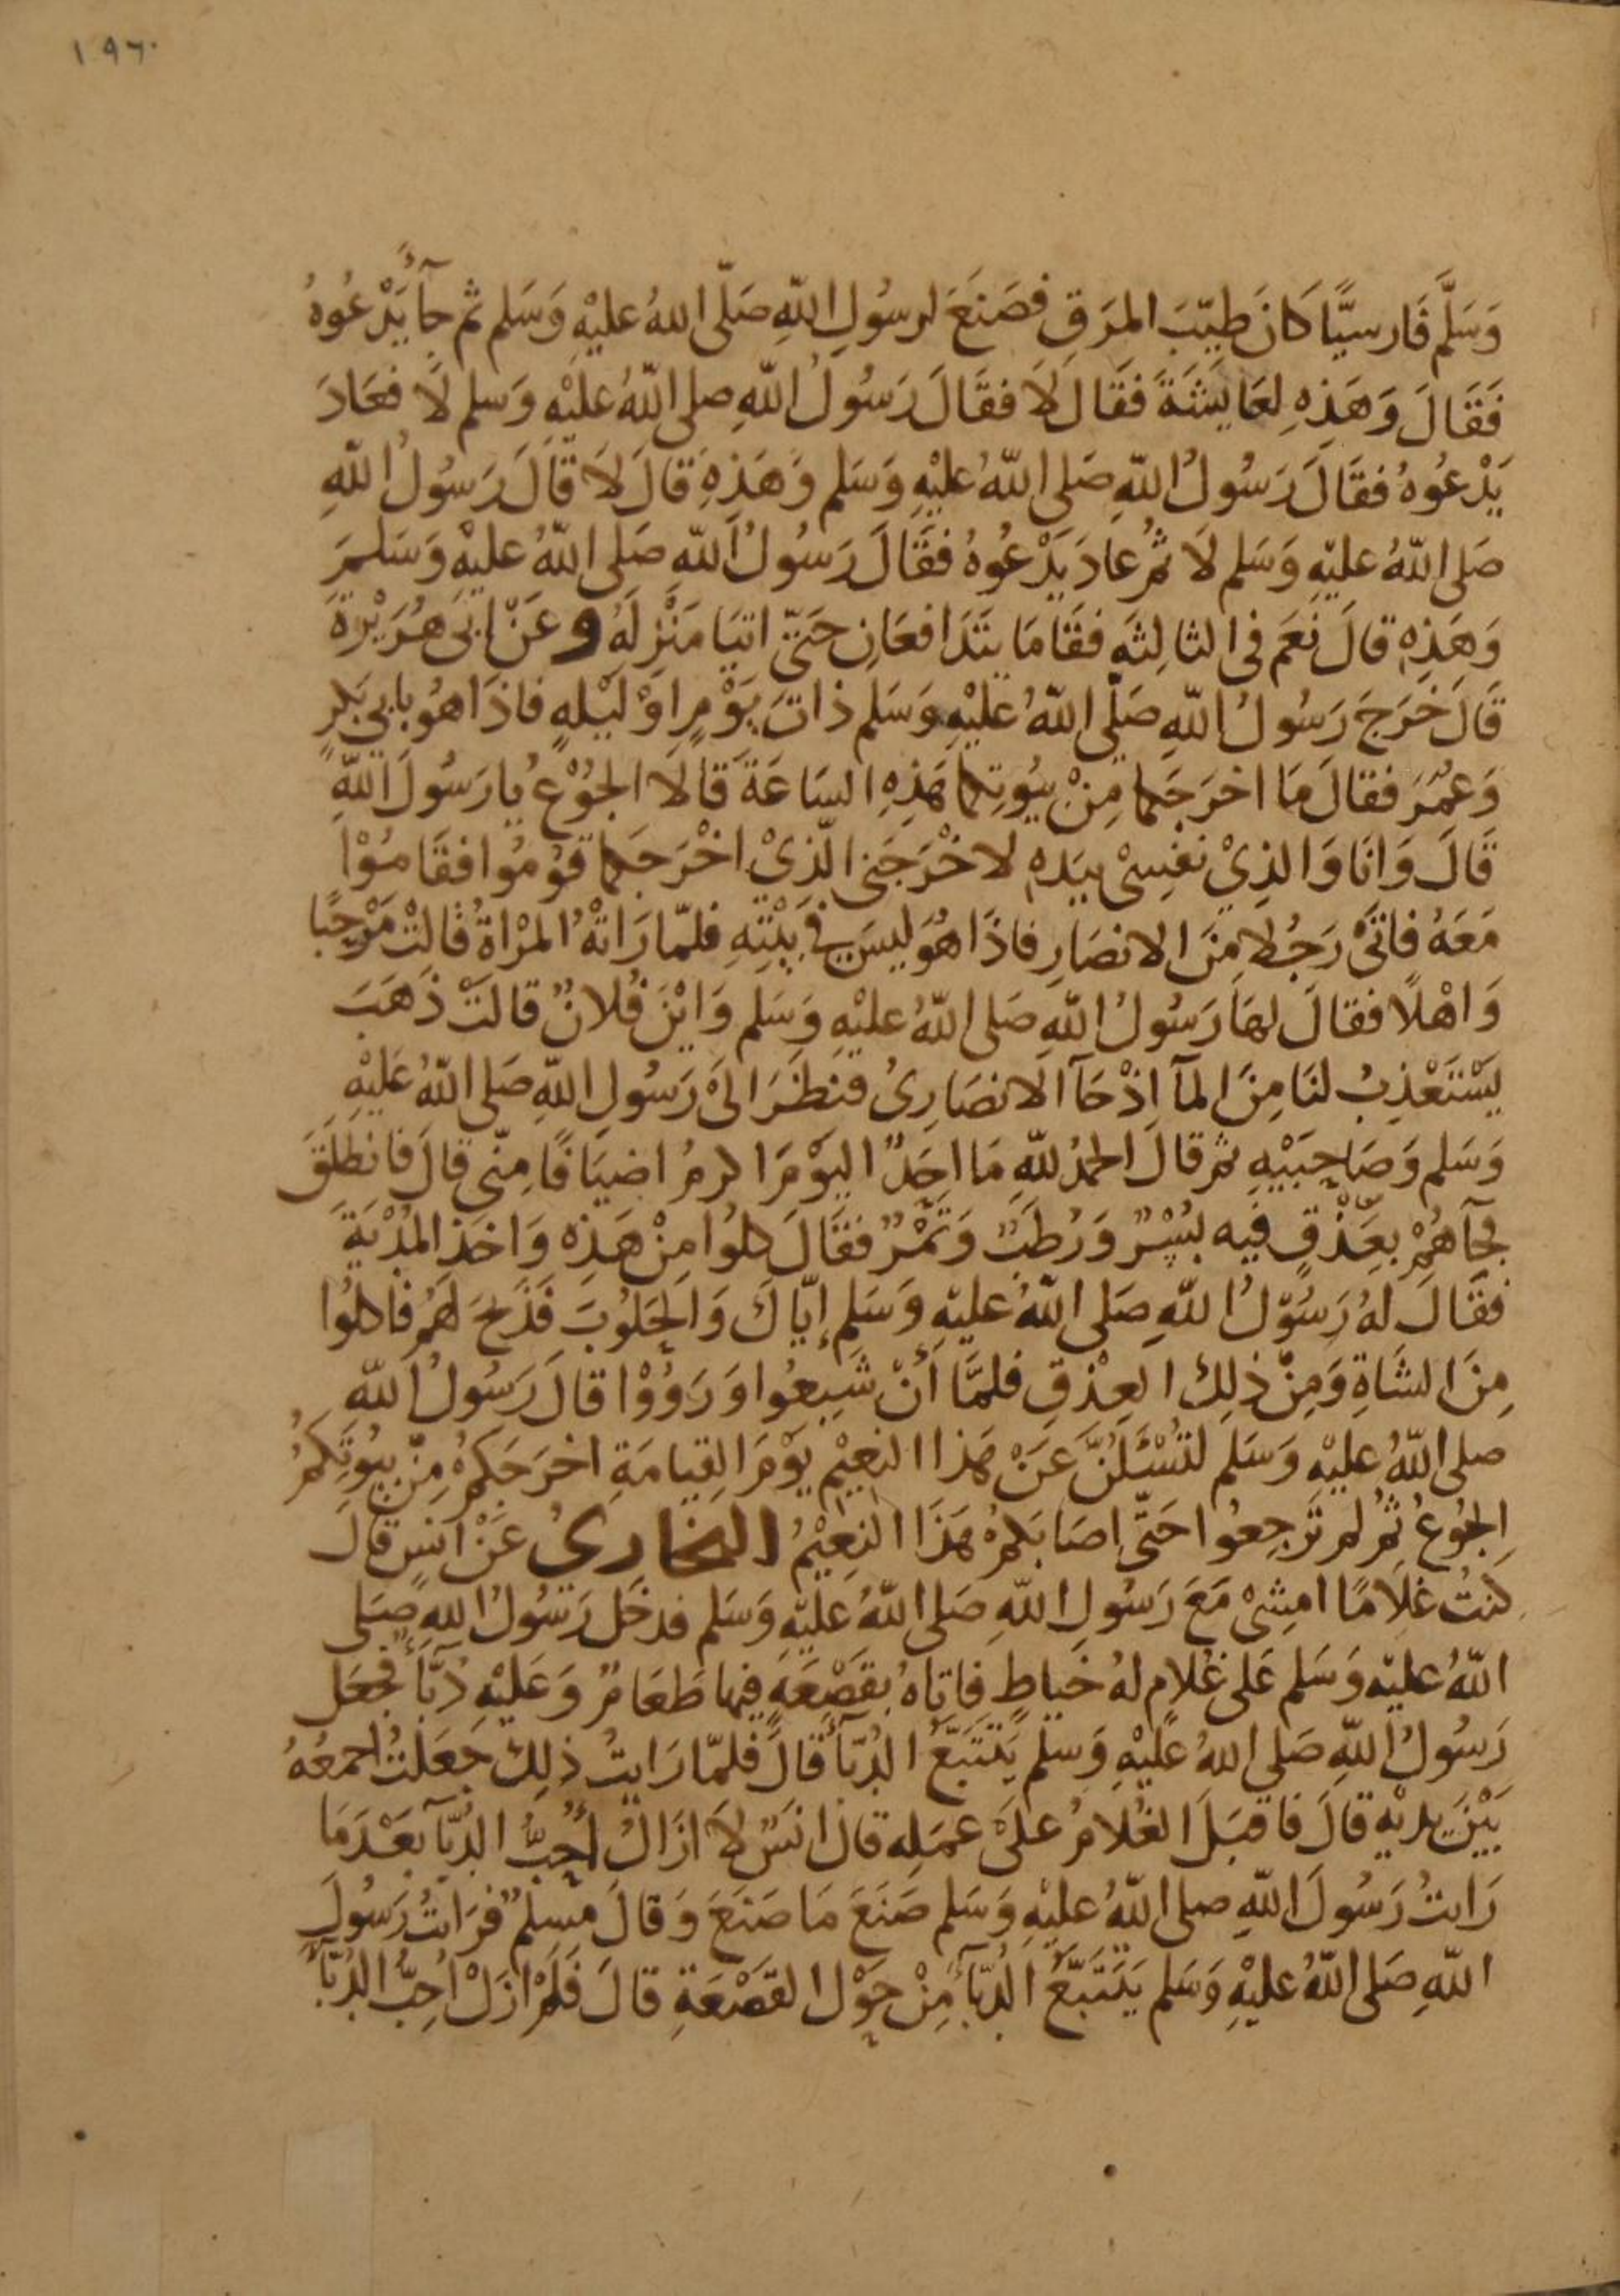 ١٩٦٠
وَسَلَّمَ فَارسيًّا كَانَ طيّبَ المرَقِ فصَنَعَ لرسُولِ اللّٰهِ صَلّى اللهُ عليْهِ وَسَلم ثم جآءَ يَدْعُوهُ
فَقَالَ وَهَذِهِ لعَايشَةَ فقَال لَا فقَالَ رَسُولُ اللّٰهِ صلى اللّٰهُ عليْهِ وَسلم لَا فعَادَ
يَدْعُوهُ فقَالَ رَسُولُ اللّٰهِ صَلى اللّٰهُ عليْهِ وَسَلم وَهَذِهِ قالَ لَا قَالَ رَسُولُ اللّٰهِ
صَلى اللّٰهُ عليْهِ وَسَلم لَا ثمُ عادَ يَدْعُوهُ فقَالَ رَسُولُ اللّٰهِ صَلى اللّٰهُ عليْهِ وَسَلمَ
وَهَذِهِ قالَ نعَم فى الثالِثهِ فقَامَا يتَدَافعَانِ حَتّى اتيَا مَنْزِلَهُ وعَنْ ابى هُرَيْرةَ
قَالَ خرَجَ رَسُولُ اللّٰهِ صَلّى اللّٰهُ عليْهِ وَسَلم ذاتَ يَوْمٍ اوْ ليْلهٍ فاذَا هُو بابي بَكرٍ
وَعُمَرَ فقالَ مَا اخرَجَكما مِنْ بيُوتِكما هَذِهِ السَاعَةَ قَالَا الجُوْعُ يا رَسُولَ اللّٰهِ
قَالَ وَانَا وَالذِيْ نفسِىْ بيَدِهِ لاخْرَجَنى الّذِىْ اخْرَجَكما قوُمُوا فقَامُوْا
مَعَهُ فاتَىَ رَجُلا مِنَ الانصَارِ فاذَا هُوَ ليسَ فى بيْتِهِ فلمّا رَاتْهُ المرْاةُ قالتْ مَرْحبًا
وَاهْلًا فقالَ لهَا رَسُولُ اللّٰهِ صَلى اللّٰهُ عليْهِ وَسَلم وَايْنَ فُلانٌ قالتْ ذهَبَ
يَسْتَعْذِبُ لنَا مِنَ المآ اِذْ جَآ الانصَارِىُ فنظَرَ الىَ رَسُولِ اللّٰهِ صَلى اللّٰهُ عَليْهِ
وَسَلم وَصَاحِبَيْهِ ثم قالَ الحمدُ للّٰهِ مَا احَدٌ اليَوْمَ اكرمُ اضيَافًا مِنّى قالَ فانطلقَ
فجَآهُمْ بعِذْقٍ فيه بُسْرٌ وَرُطَبٌ وَتَمْرٌ فقَالَ كلوُا مِنْ هَذِهِ وَاخَذ المُدْيَةَ
فقَالَ لهُ رَسُوْلُ اللّٰهِ صَلى اللّٰهُ عليْهِ وَسَلم إيّاكَ وَالحَلوُبَ فَذَبحَ لهمُ فاكلوُا
مِنَ الشَاةِ وَمِنْ ذلِكَ العِذْقِ فلمَّا أنْ شبِعُوا وَرَوُوْا قالَ رَسُولُ اللّٰهِ
صلى اللّٰهُ عليْهِ وَسَلم لتُسْئَلُنَّ عَنْ هَذا النعِيْم يوْمَ القِيامَةِ اخرَجَكمُ مِنْ بيُوتِكمُ
الجُوعُ ثمُ لمِ ترْجعُوا حَتّى اصَابَكمُ هَذَا النعِيْمُ البخاري عَنْ انسٍ قالَ
كنتُ غلامًا امشِىْ مَعَ رَسُولِ اللّٰهِ صَلى اللّٰهُ عليْهِ وَسَلم فدخَل رَسُولُ اللّٰهِ صَلى
اللّٰهُ عليْهِ وَسَلم عَلى غُلامٍ لهُ خيَاطٍ فاتاهُ بقَصْعَةٍ فيها طَعَامٌ وَعَليْهِ دُبّآءٌ فجعَل
رَسُولُ اللّٰهِ صَلى اللهُ عَليْهِ وَسَلم يَتَتَبَّعُ الدُبّآءَ قالَ فلمّا رَايتُ ذلِكَ جَعَلتُ اجمعُهُ
بَيْنَ يديْهِ قالَ فاقبَلَ الغُلامُ علىَ عمَلِه قالَ انسٌ لَا ازَالُ أحِبُّ الدُبّآ بَعْدَمَا
رَايتُ رَسُولَ اللّٰهِ صلى اللّٰهُ عليْهِ وَسَلم صَنَعَ مَا صَنعَ وَقالَ مسِلمٌ فرَايتُ رَسُولَ
اللّٰهِ صَلى اللّٰهُ عليْهِ وَسَلم يَتَتَبَّعُ الدُبّآءَ مِنْ حَوْلِ القصْعَةِ قالَ فَلمْ ازَلْ اُحِبُّ الدُبّآءَ